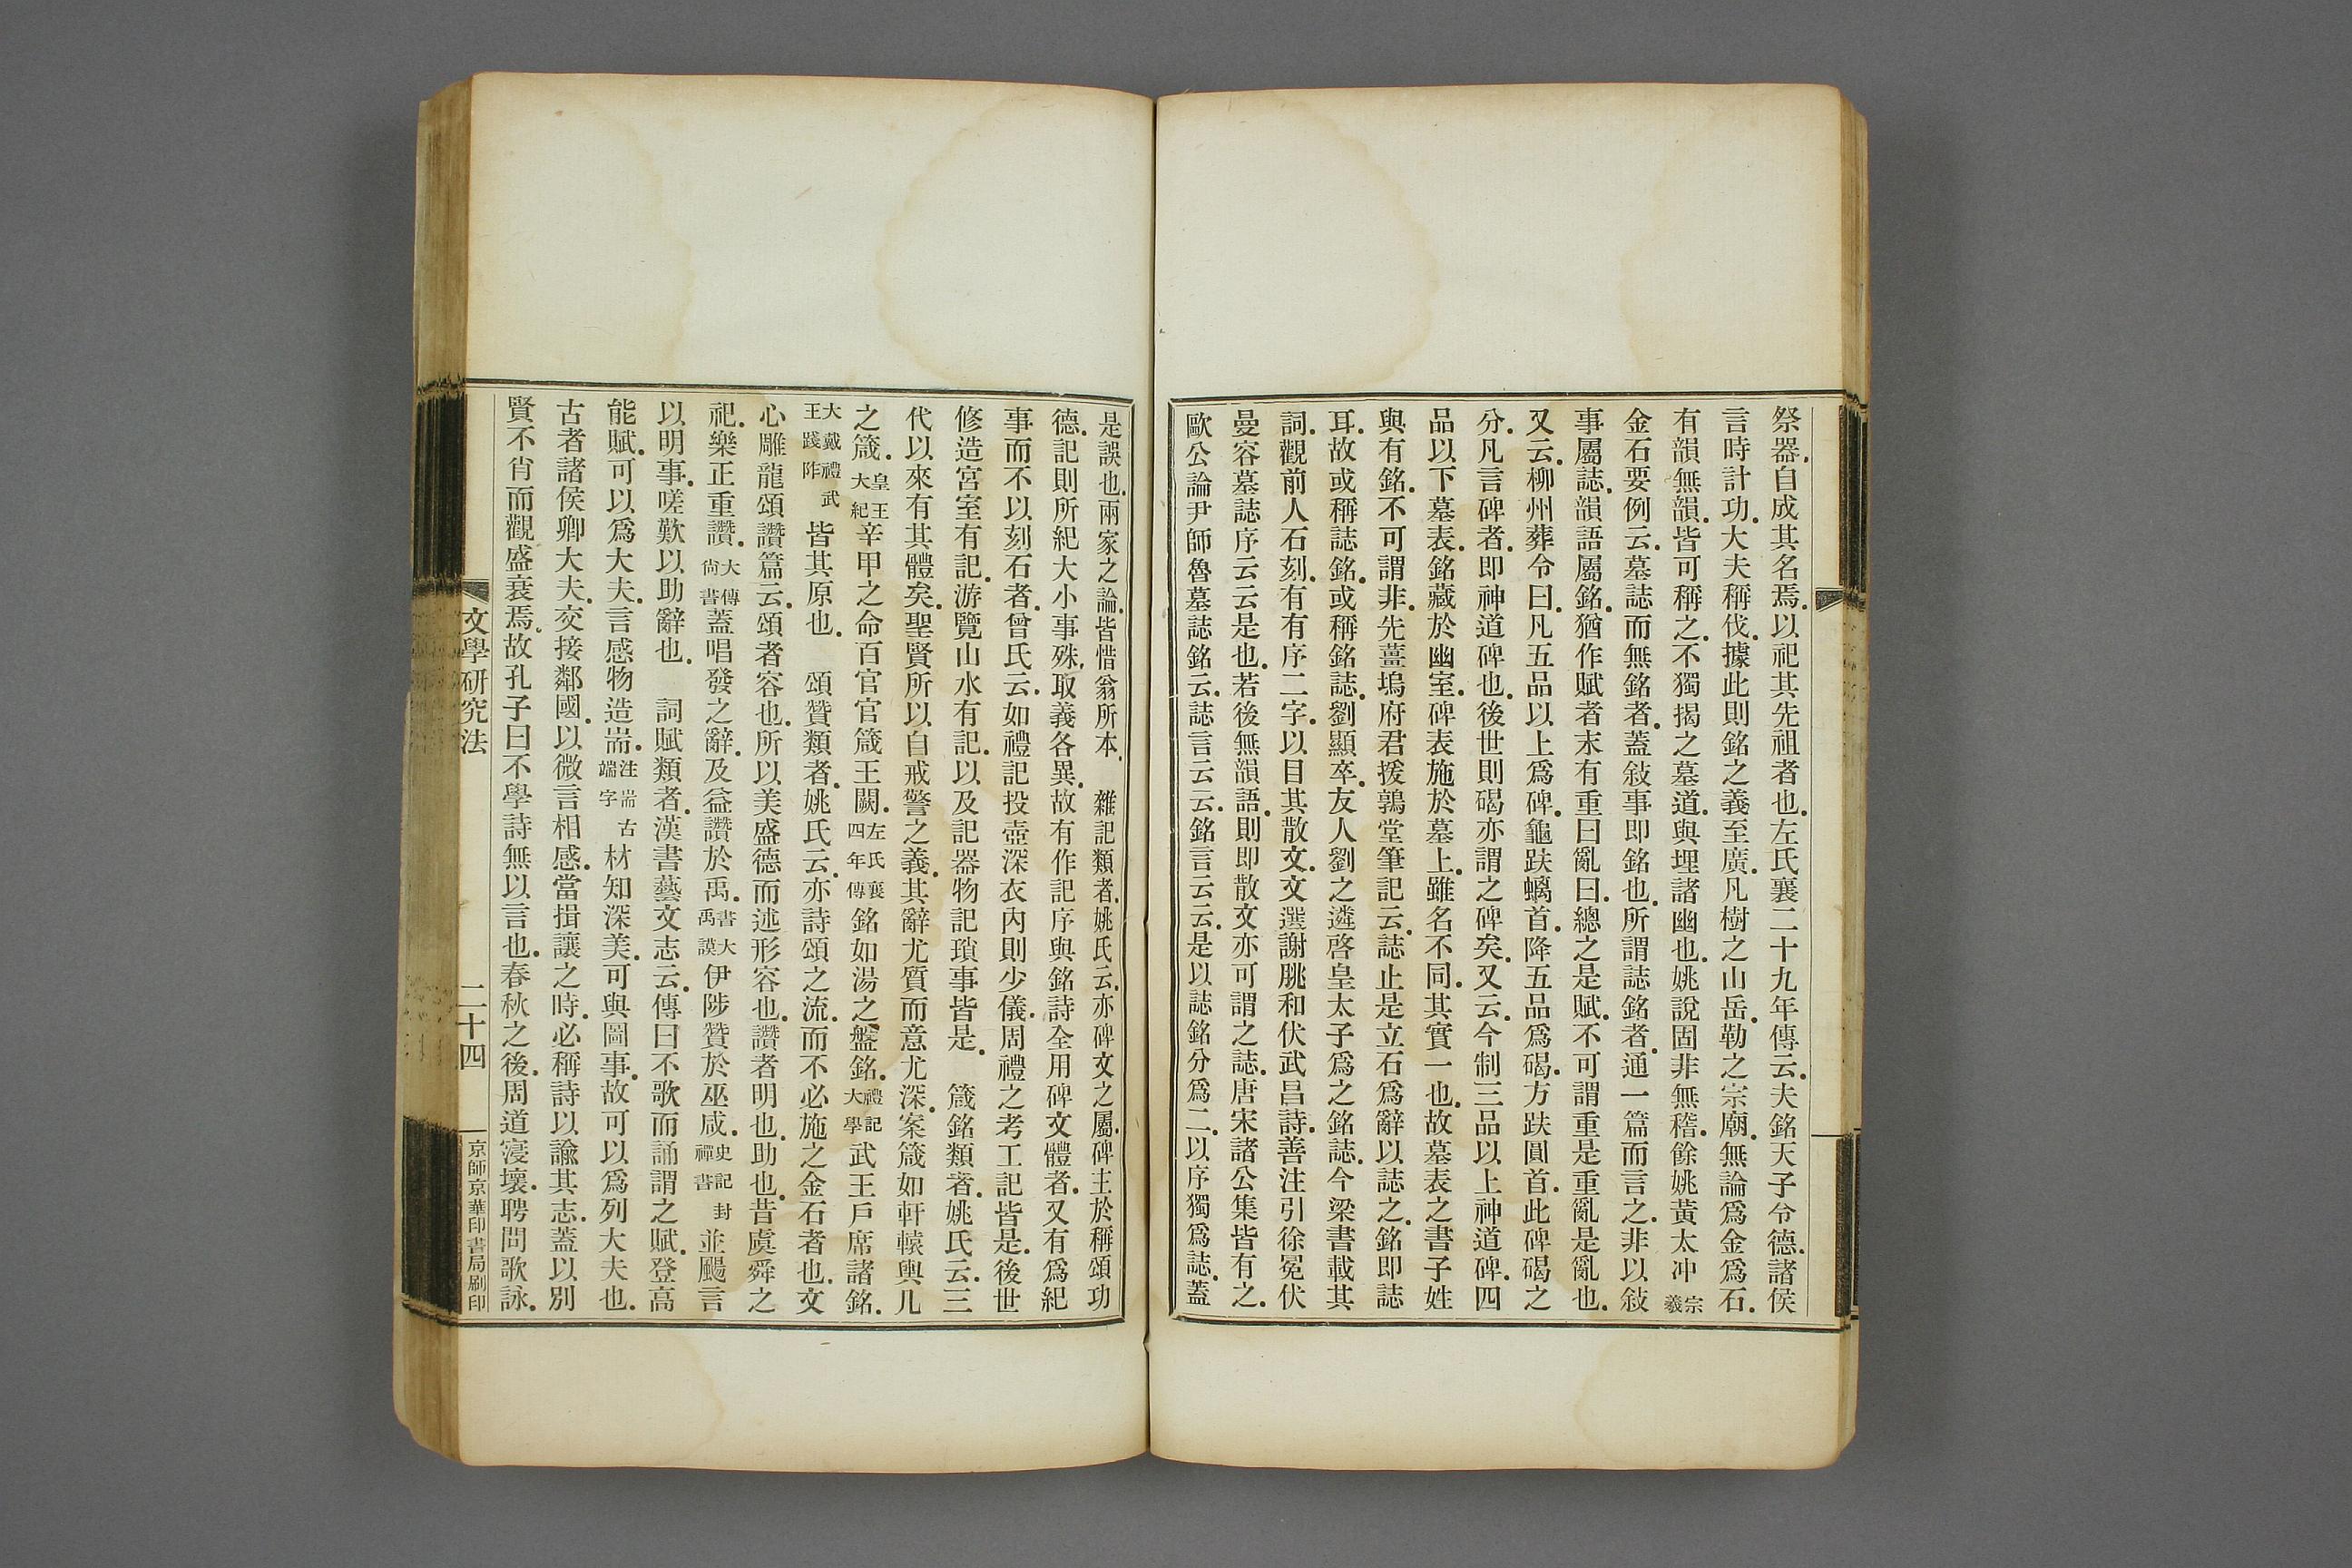 祭器.自成其名焉.以祀其先祖者也.左氏襄二十九年傳云.夫銘天子令德.諸侯
言時計功.大夫稱伐.據此則銘之義至廣.凡樹之山岳.勒之宗廟.無論爲金爲石.
有韻無韻.皆可稱之.不獨揭之墓道.與埋諸幽也.姚說固非無稽.餘姚黃太冲宗羲
金石要例云.墓誌而無銘者.蓋敍事即銘也.所謂誌銘者.通一篇而言之.非以敍
事屬誌.韻語屬銘.猶作賦者末有重曰亂曰.總之是賦.不可謂重是重亂是亂也.
又云.柳州葬令曰.凡五品以上爲碑.龜趺螭首.降五品爲碣.方趺圓首.此碑碣之
分.凡言碑者.即神道碑也.後世則碣亦謂之碑矣.又云.今制三品以上神道碑.四
品以下墓表.銘藏於幽室.碑表施於墓上.雖名不同.其實一也.故墓表之書子姓
與有銘.不可謂非.先薑塢府君援鶉堂筆記云.誌止是立石爲辭以誌之.銘即誌
耳.故或稱誌銘.或稱銘誌.劉顯卒.友人劉之遴啓皇太子爲之銘誌.今梁書載其
詞.觀前人石刻.有有序二字.以目其散文.文選謝朓和伏武昌詩.善注引徐冕伏
曼容墓誌序云云是也.若後無韻語.則即散文亦可謂之誌.唐宋諸公集皆有之.
歐公論尹師魯墓誌銘云.誌言云云.銘言云云.是以誌銘分爲二.以序獨爲誌.蓋
是誤也.兩家之論.皆惜翁所本.　雜記類者.姚氏云.亦碑文之屬.碑主於稱頌功
德.記則所紀大小事殊.取義各異.故有作記序與銘詩全用碑文體者.又有爲紀
事而不以刻石者.曾氏云.如禮記投壺深衣內則少儀.周禮之考工記皆是.後世
修造宮室有記.游覽山水有記.以及記器物記瑣事皆是.　箴銘類者.姚氏云.三
代以來有其體矣.聖賢所以自戒警之義.其辭尤質而意尤深.案箴如軒轅輿几
之箴.皇王大紀辛甲之命百官官箴王闕.左氏襄四年傳銘如湯之盤銘.禮記大學武王戶席諸銘.
大戴禮武王踐阼皆其原也.　頌贊類者.姚氏云.亦詩頌之流.而不必施之金石者也.文
心雕龍頌讚篇云.頌者容也.所以美盛德而述形容也.讚者明也.助也.昔虞舜之
祀.樂正重讚.尙書大傳蓋唱發之辭.及益讚於禹.書大禹謨伊陟贊於巫咸.史記封禪書並颺言
以明事.嗟歎以助辭也.　詞賦類者.漢書藝文志云.傳曰不歌而誦謂之賦.登高
能賦.可以爲大夫.言感物造耑.注耑古端字材知深美.可與圖事.故可以爲列大夫也.
古者諸侯卿大夫.交接鄰國.以微言相感.當揖讓之時.必稱詩以諭其志.蓋以別
賢不肖而觀盛衰焉.故孔子曰不學詩無以言也.春秋之後.周道寖壞.聘問歌詠.
文學研究法
二十四
京師京華印書局刷印